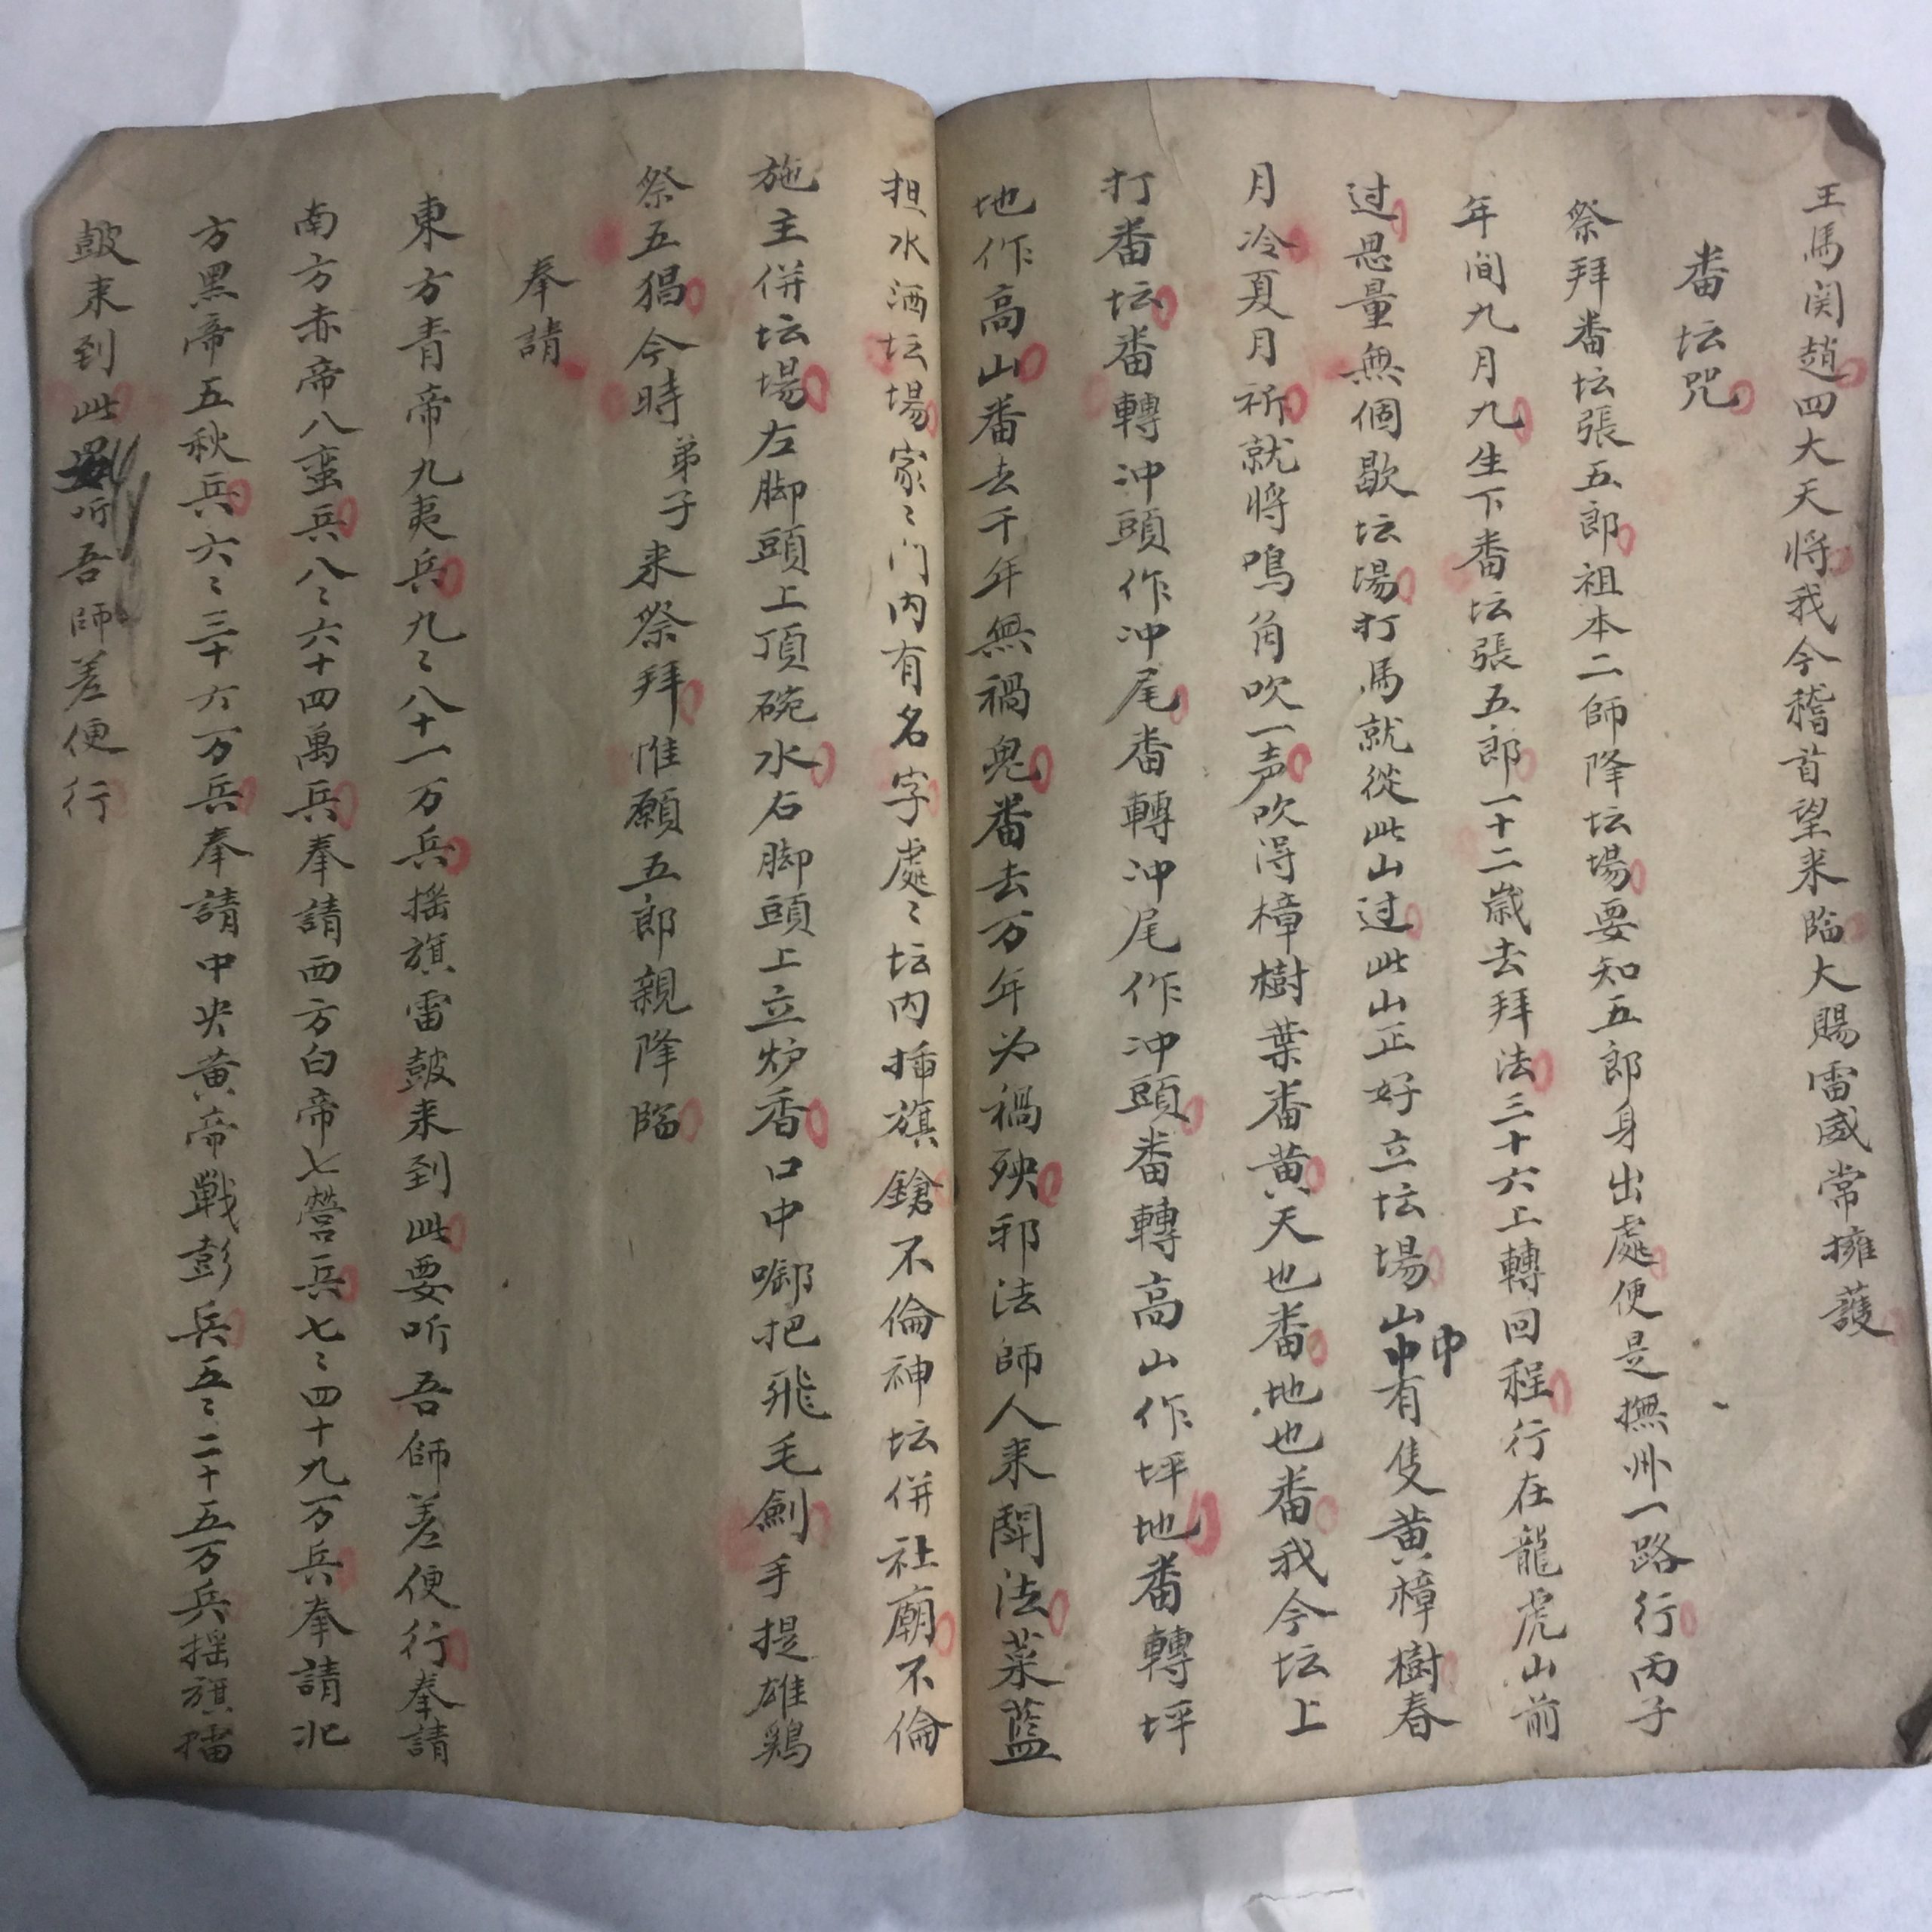 王馬関趙四大天将我今稽首望来臨大賜雷威常擁護
番坛咒
祭拜番坛張五郎祖本二師降坛場要知五郎身出處便是撫州一路行丙子
年间九月九生下番坛張五郎一十二歲去拜法三十六上轉回程行在龍虎山前
过思量無個歇坛場打馬就從此山过此山正好立坛場山中有隻黄樟樹春
月冷夏月祈就将鳴角吹一声吹得樟樹葉番黄天也番地也番我今坛上
打番坛番轉冲頭作冲尾番轉冲尾作冲頭番轉高山作坪地番轉坪
地作高山番去千年無禍鬼番去万年为禍殃邪法師人来閗法菜藍
担水洒坛場家〻门内有名字處〻坛内插旗鎗不倫神坛併社廟不倫
施主併坛場左脚頭上頂碗水右脚頭上立炉香口中啣把飛毛劍手提雄鷄
祭五猖今時弟子来祭拜惟願五郎親降臨
奉請
東方青帝九夷兵九〻八十一万兵摇旗雷皷来到此要听吾師差便行奉請
南方赤帝八蛮兵八〻六十四萬兵奉請西方白帝七營兵七〻四十九万兵奉請北
方黑帝五秋兵六〻三十六万兵奉請中央黄帝戰彭兵五〻二十五万兵摇旗擂
皷来到此听吾師差便行